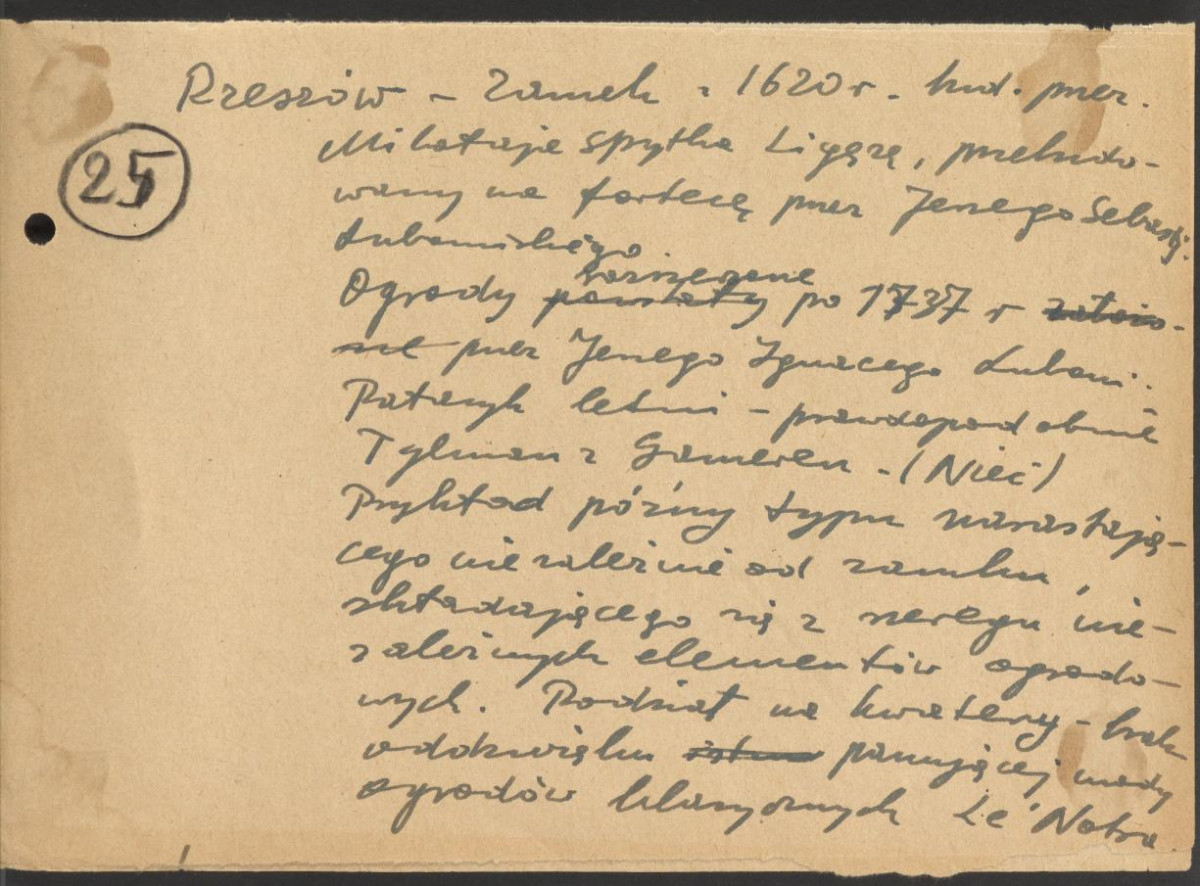 Rzeszów – Zamek z 1620 r. bud. przez.
25
Mikołaja Spytka Ligęzę, przebudo-
wany na fortecę przez Jerzego Sebastj.
Lubomirskiego.
rozszerzone
Ogrody powstały po 1737 r założo-
ne przez Jerzego Ignacego Lubom..
Pałacyk letni – prawdopodobnie
Tylman z Gameren - (Nieć)
Przykład późny typu narastają-
cego niezależnie od zamku,
składającego się z szeregu nie-
zależnych elementów ogrodo-
wych. Podział na kwatery – brak
oddźwięku panującej mody
ogrodów klasycznych Le Notra.